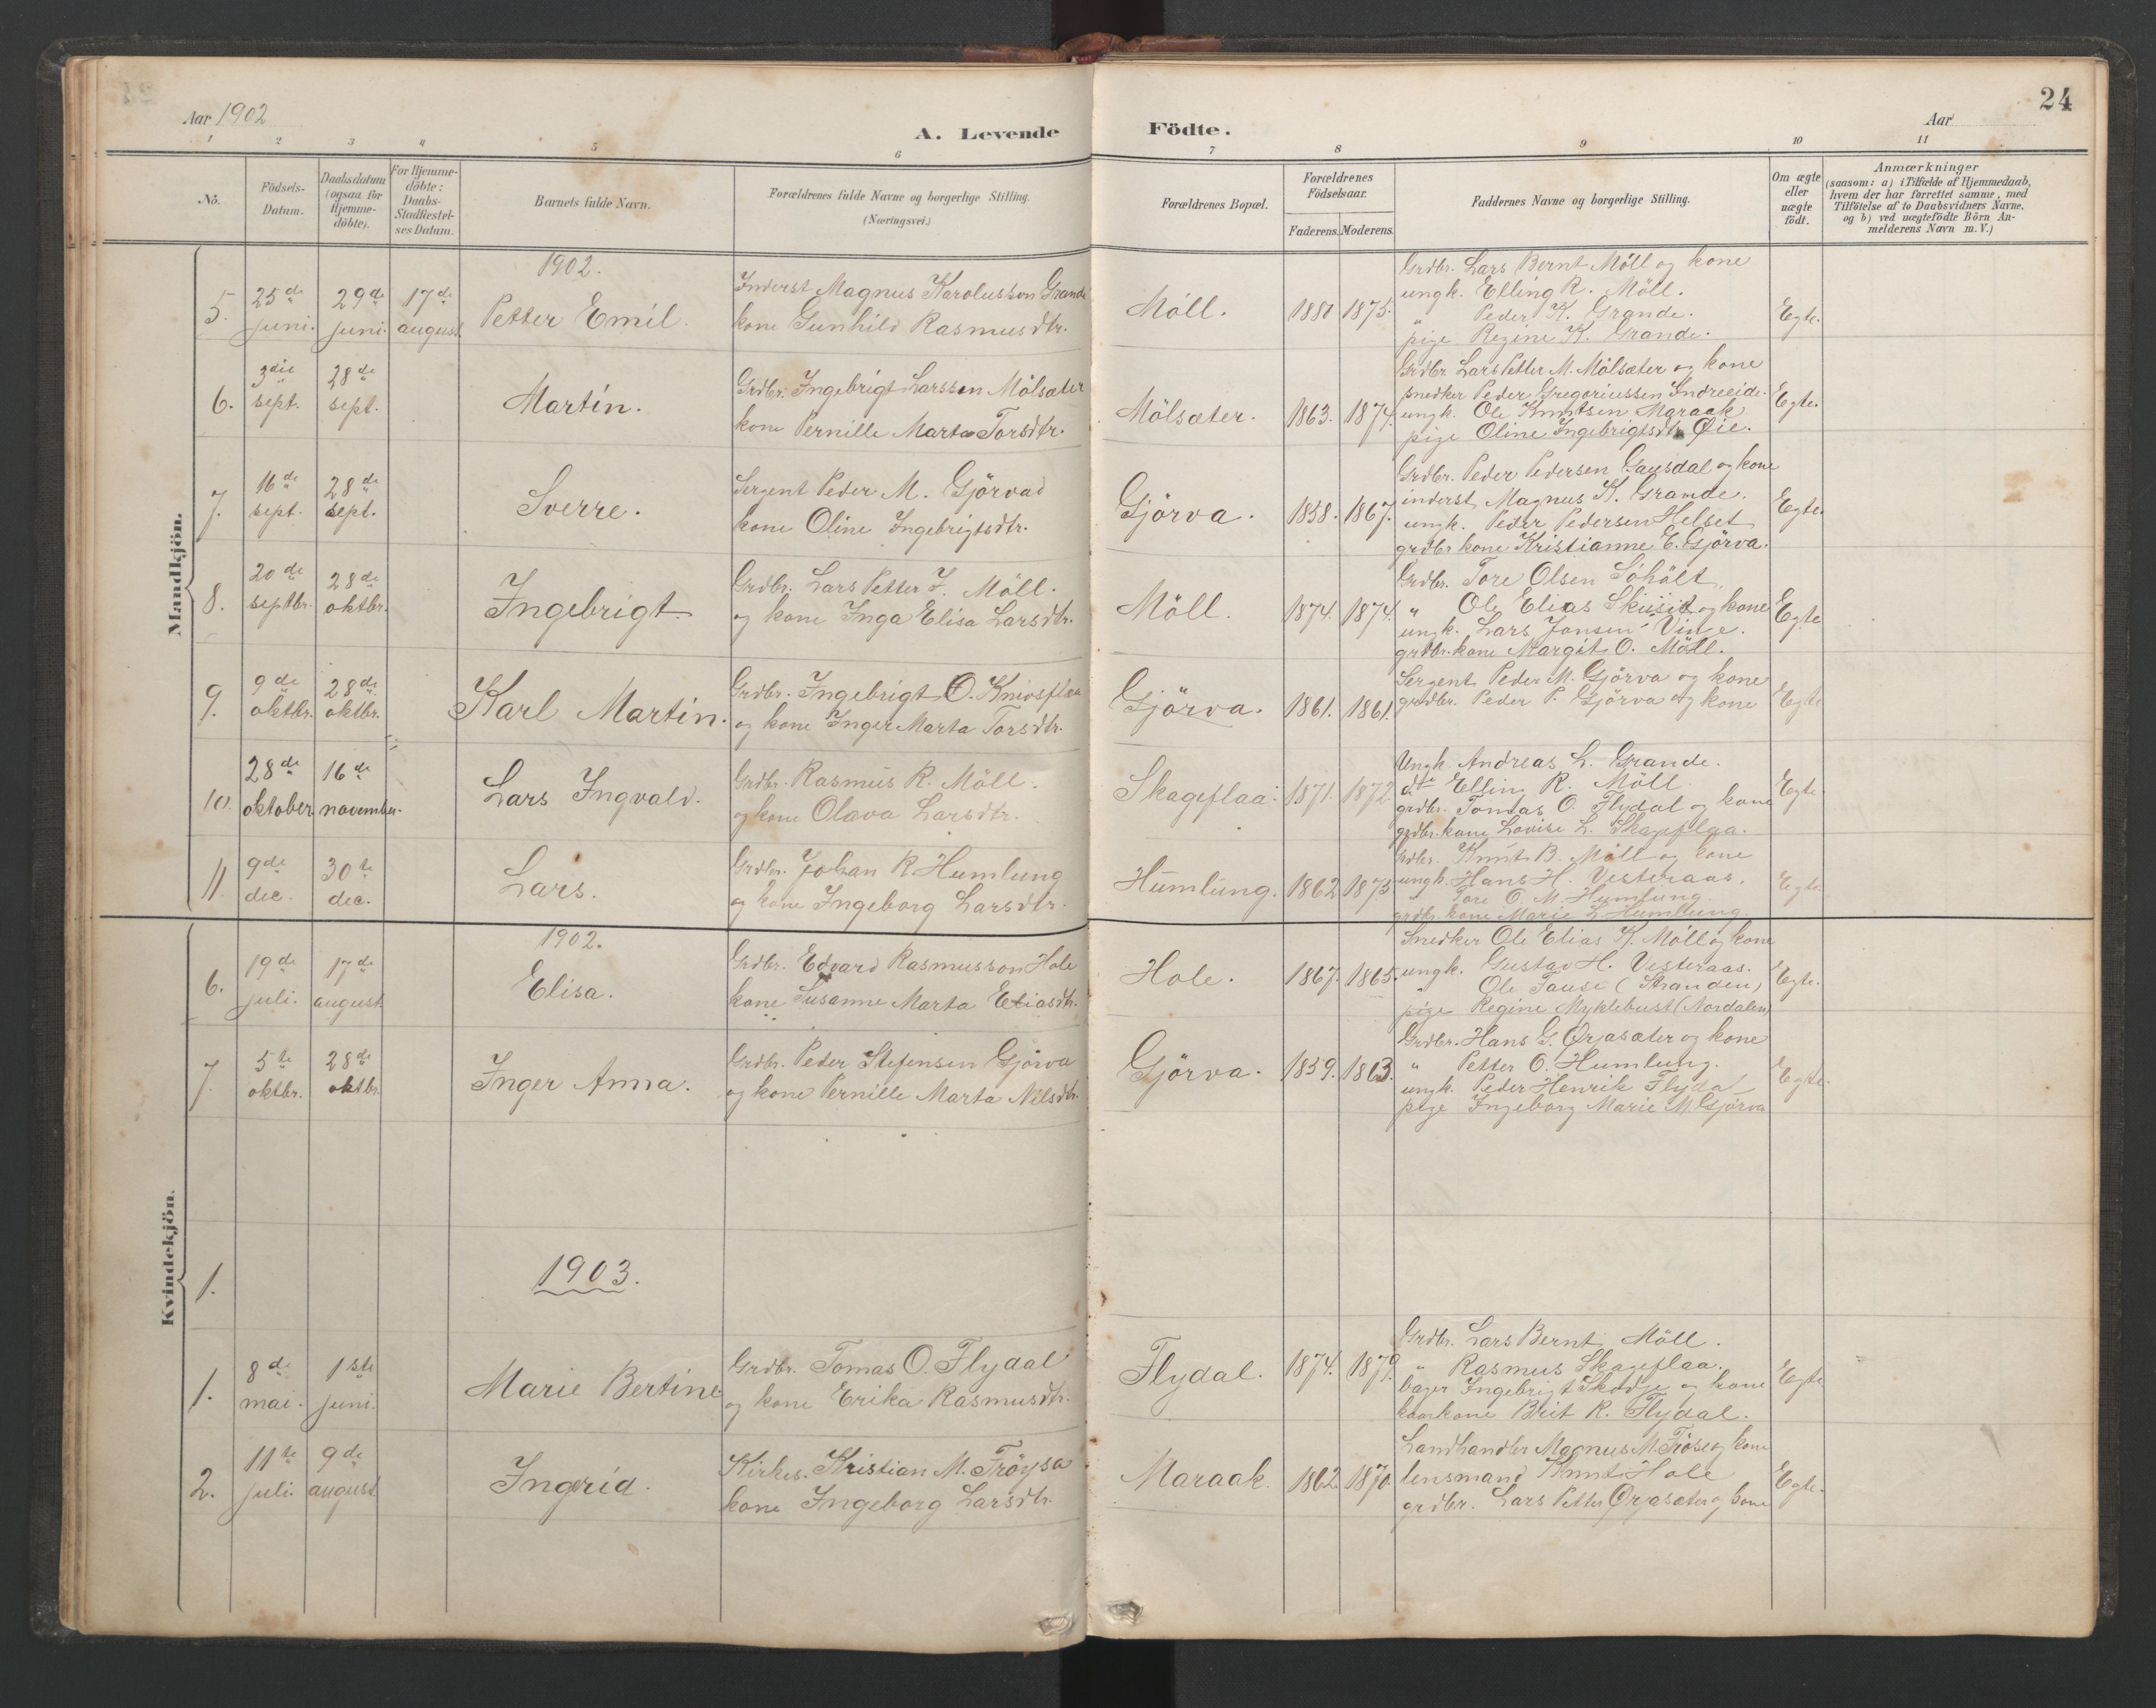 24
Aar 1902
A. Levende Födte.
Aar
1 2 3 4 5 6 7 8 9 10 11
No.
Födsels-
Datum.
Daabsdatum
(ogsaa for
Hjemme-
döbte).
For Hjemme-
döbte:
Daabs-
Stadfæstel-
ses Datum.
Barnets fulde Navn.
Forældrenes fulde Navne og borgerlige Stilling.
(Næringsvei.)
Forældrenes Bopæl.
Forældrenes
Födselsaar.
Faderens. Moderens.
Faddernes Navne og borgerlige Stilling.
Om ægte
eller
uægte
födt.
Anmærkninger
(saasom: a) i Tilfælde af Hjemmedaab,
hvem der har forrettet samme, med
Tilföielse af to Daabsvidners Navne,
og b) ved uægtefödte Börn An-
melderens Navn m. V.)
Mandkjön.
1902.
5. 25de juni. 29de juni. 17de august
Petter Emil.
Inderst Magnus Karolusson Grande
kone Gunhild Rasmusdtr.
Möll. 1881 1875.
Grdbr. Lars Bernt Möll og kone
ungk. Elling R. Möll.
" Peder K. Grande.
pige Regine K. Grande.
Egte.
6. 3die sept. 28de sept.
Martin.
Grdbr. Ingebrigt Larssen Mölsæter
kone Pernille Marta Torsdtr.
Mölsæter. 1863. 1874.
Grdbr. Lars Petter M. Mölsæter og kone
snedker Peder Gregoriussen Indreeide.
ungk. Ole Knutsen Maraak
pige Oline Ingebrigtsdtr Øie.
Egte.
7. 16de sept. 28de sept.
Sverre.
Sergent Peder M. Gjörvad
kone Oline Ingebrigtsdtr.
Gjörva. 1858. 1867.
Grdbr. Peder Pedersen Gausdal og kone
inderst Magnus K. Grande.
ungk. Peder Pedersen Helset
grdbr kone Kristianne E. Gjörva.
Egte.
8. 20de septbr. 28de oktbr.
Ingebrigt.
Grdbr. Lars Petter I. Möll.
og kone Inga Elisa Larsdtr.
Möll. 1874. 1874.
Grdbr. Tore Olsen Söhölt.
" Ole Elias og kone
ungk. Lars Jonsen Vinje.
grdbr.kone Margit O. Möll.
Egte
9. 9de oktbr. 28de oktbr.
Karl Martin.
Grdbr. Ingebrigt O. Knivsflaa
og kone Inger Marta Torsdtr.
Gjörva. 1861. 1861.
Sergent Peder M. Gjörva og kone
grdbr. Peder P. Gjörva og kone
Egte
10. 28de oktober 16de november.
Lars Ingvald.
Grdbr. Rasmus R. Möll.
og kone Olava Larsdtr.
Skageflaa. 1871. 1872
Ungk. Andreas L. Grande.
dto Elling R. Möll
grdbr. Tomas O. Flydal og kone
grdbr.kone Lovise L. Skageflaa.
Egte
11. 9de dec. 30te dec.
Lars.
Grdbr. Johan R. Humlung
og kone Ingeborg Larsdtr.
Humlung. 1862 1875.
Grdbr. Knut B. Möll og kone
ungk. Hans H. Vesteraas.
" Tore O. M. Humlung.
grdbr. kone Marie L. Humlung.
Egte
Kvindekjön.
1902.
6. 19de juli. 17de august
Elisa.
Grdbr. Edvard Rasmusson Hole
kone Susanne Marta Eliasdtr.
Hole. 1867. 1865.
Snedker Ole Elias K. Möll og kone
ungk. Gustav H. Vesteraas.
" Ole Tause (Stranden)
pige Regine Myklebust (Nordalen)
Egte.
7. 5te oktbr. 28de oktbr.
Inger Anna.
Grdbr. Peder Stefensen Gjörva
og kone Pernille Marta Nilsdtr.
Gjörva. 1859. 1863.
Grdbr. Hans G. Ørjasæter og kone
" Petter O. Humlung.
ungk. Peder Henrik Flydal
pige Ingeborg Marie M. Gjörva
Egte.
1.
1903.
1. 8de mai. 1ste juni.
Marie Bertine
Grdbr. Tomas O. Flydal
og kone Erika Rasmusdtr.
Flydal. 1874. 1879.
Grdbr. Lars Bernt Möll.
" Rasmus Skageflaa.
bager Ingebrigt Skodje og kone
kaarkone Brit R. Flydal.
Egte
2. 11te juli. 9de august
Ingrid.
Kirkes. Kristian M. Tröysa
kone Ingeborg Larsdtr.
Maraak. 1862. 1870.
Landhandler Magnus M. og kone
lensmand Knut Hole
grdbr. Lars Petter Ørjasæter og kone
Egte.